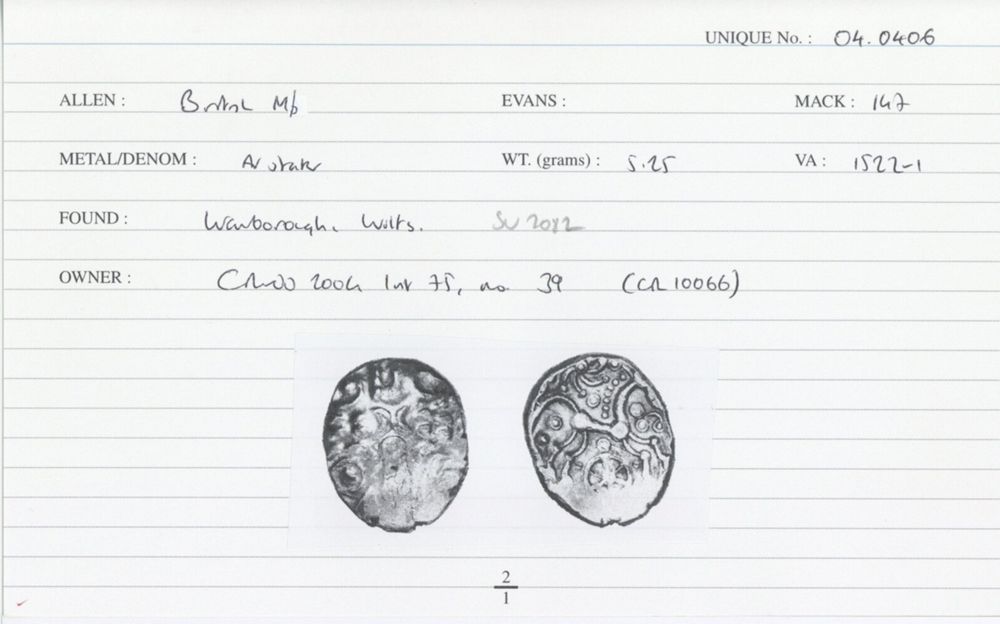 UNIQUE No. : 04.0406
ALLEN : British Mb EVANS : MACK : 147
METAL/DENOM : Ar stater WT. (grams) : 5.25 VA : 1522-1
FOUND : Wanborough, Wilts. SU 2082
OWNER : 2004 no. 39 (CR 10066)
2
1